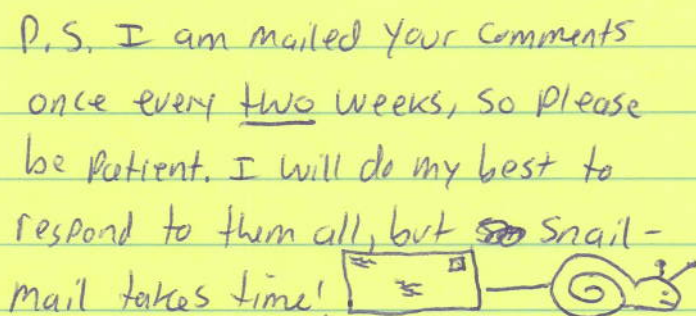 P.S. I am mailed your comments
once every two weeks, so please
be patient. I will do my best to
respond to them all, but snail-
mail takes time!